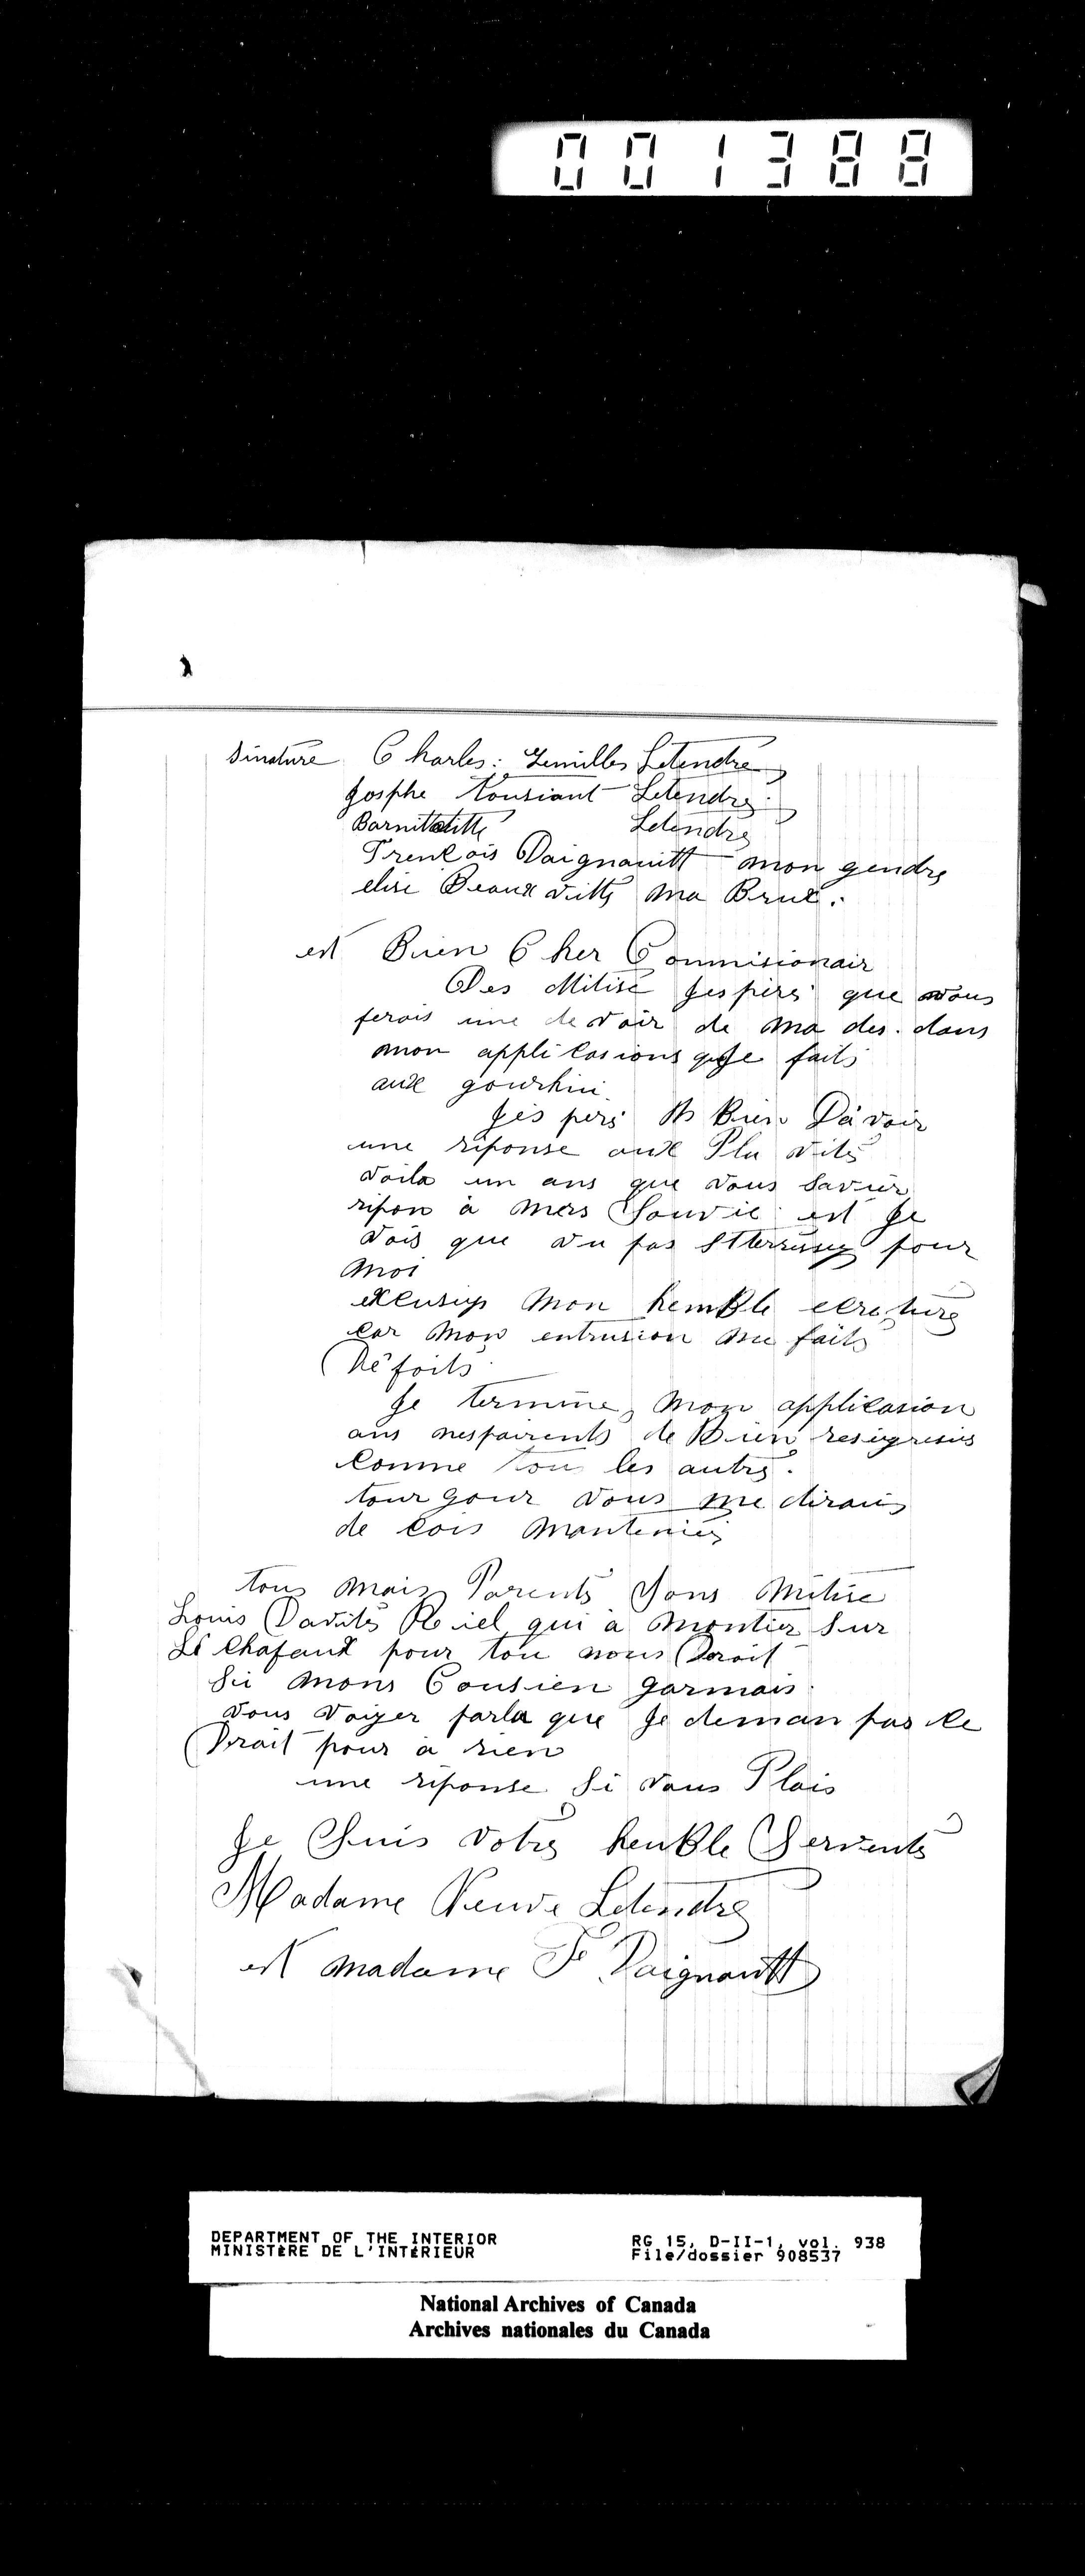 001388
Sinature Charles: Zemilles Letendre
Josphe Tousiant Letendre
Letendre
Frencois Daignauitt mon gendre
elisi Beaux ville ma Brue.
est Bien Cher Commisionair
Des Mitise Jespère que vous
ferais une devoir de ma des. dans
mon applicasions que Je faits
aux gourhui
Jes père Bien Dà voir
une réponse aux Plu vite
voila un ans que vous Savier
répon à mers Souvic est Je
vois que vu pas pour
moi
excusiup mon hemBle
car mon entrusion me faits
Défaits
Je termine mon applicasion
ans nespairents de Bien
Comme tou les autre.
tour gour vous me dirais
de cois mantenies
tous mais Parents Sons mitise
Louis Davite Riel qui à montier Sur
Lé chafaux pour tou nous Droit
Sii mons Cousien garmais.
vous voiyer parla que Je deman pas le
Drait pour à rien
une réponse Si vous Plais
Je Suis votre hemBle Servente
Madame Veuve Letendre
est madame F Daignauitt
DEPARTMENT OF THE INTERIOR RG 15, D-II-1, vol. 938
MINISTÈRE DE L'INTÉRIEUR File/dossier 908537
National Archives of Canada
Archives nationales du Canada